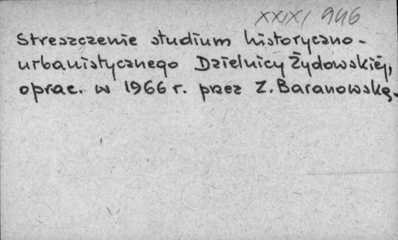 XXIX/946
Streszczenie studium historyczno-
urbanistycznego Dzielnicy Żydowskiej,
oprac. w 1966 r. przez Z. Baranowską.